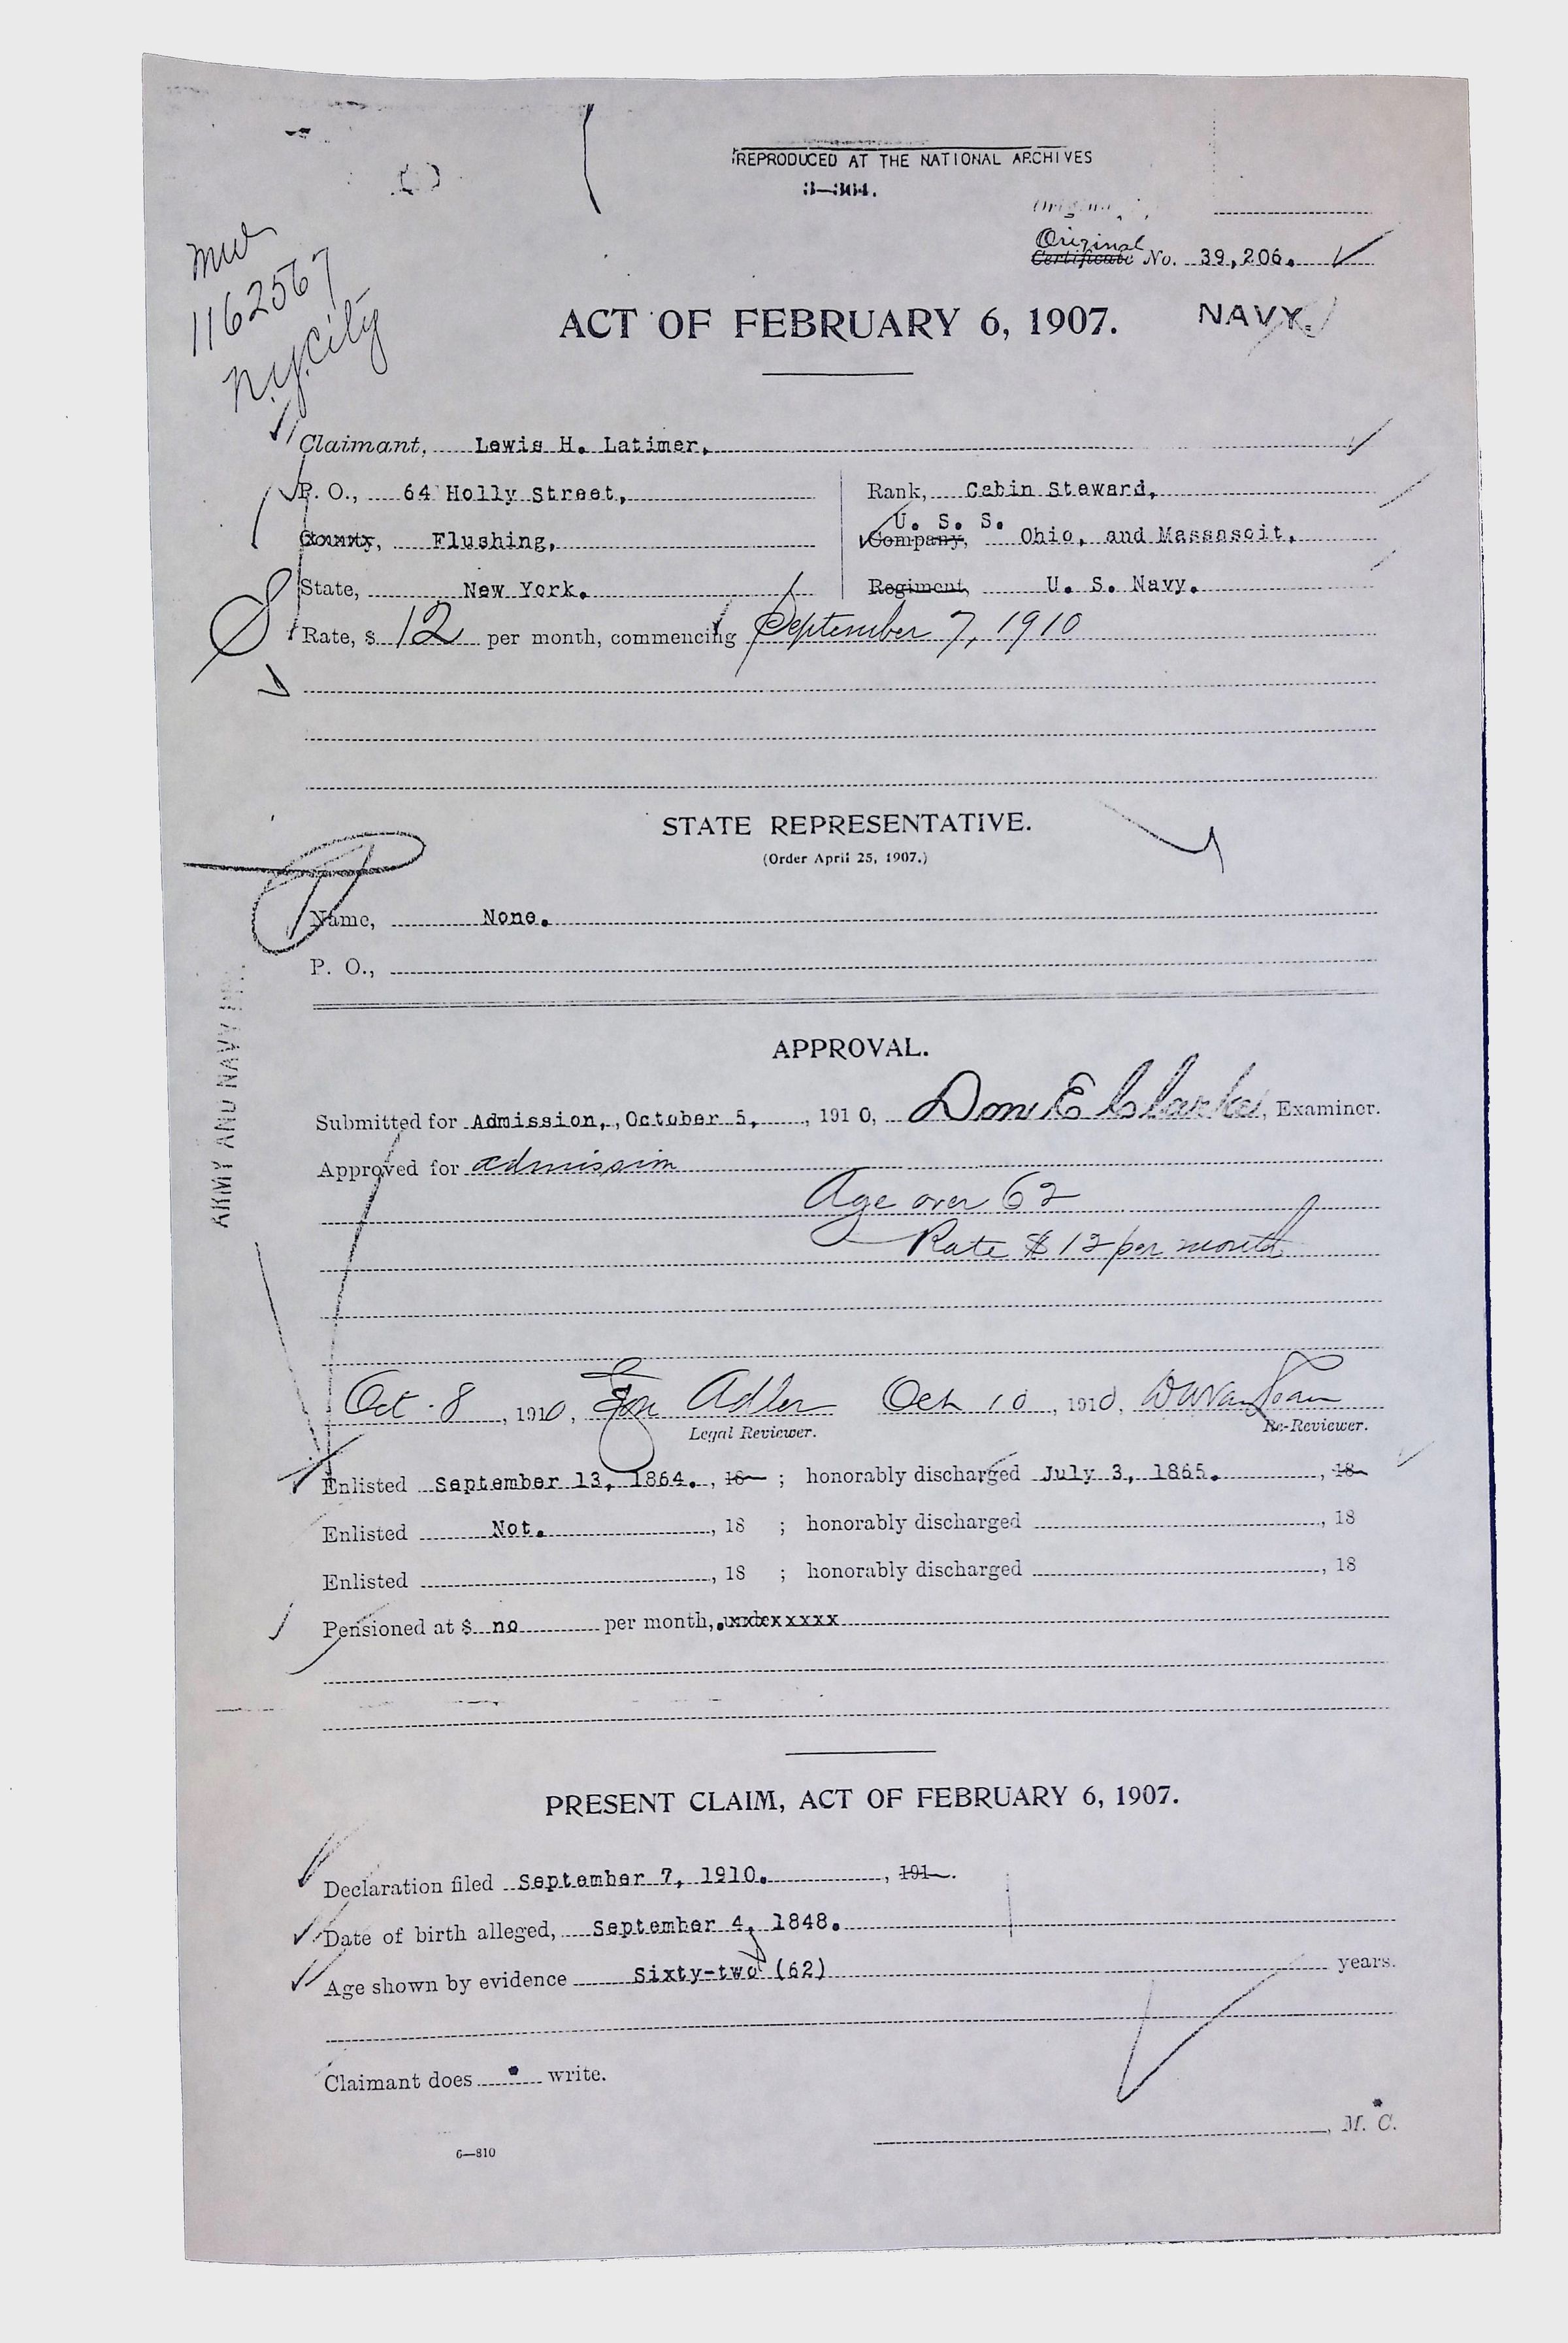 REPRODUCED AT THE NATIONAL ARCHIVES
3—364.
Original
Certificate No. 39,206.
mw
1162567
N.Y. City
ACT OF FEBRUARY 6, 1907. NAVY.
Claimant, Lewis H. Latimer,
P. O., 64 Holly Street, Rank, Cabin Steward,
U. S. S.
County, Flushing, Company, Ohio, and Massasoit,
State, New York. Regiment, U. S. Navy.
Rate, $ 12 per month, commencing September 7, 1910
STATE REPRESENTATIVE.
(Order April 25, 1907.)
Name, None.
P. O.,
ARMY AND NAVY
APPROVAL.
Submitted for Admission, October 5, , 1910, Don E Clarke, Examiner.
Approved for admission
Age over 62
Rate $12 per month
Oct. 8, 1910, Adler Oct 10, 1910,
Legal Reviewer. Re-Reviewer.
Enlisted September 13, 1864. , 18 ; honorably discharged July 3, 1865. , 18
Enlisted Not. , 18 ; honorably discharged , 18
Enlisted , 18 ; honorably discharged , 18
Pensioned at $ no per month,
PRESENT CLAIM, ACT OF FEBRUARY 6, 1907.
Declaration filed September 7, 1910. , 191 .
Date of birth alleged, September 4, 1848.
Age shown by evidence Sixty-two (62) years.
Claimant does write.
, M. C.
6—810